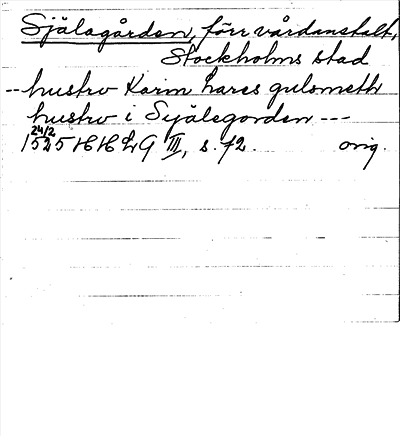 Själagården, förr vårdanstalt,
Stockholms stad
-- hustrv Karin hares gulsmeth
hustrv i Syälegorden ---
24/2
1525 HH LG III, s. 72. orig.